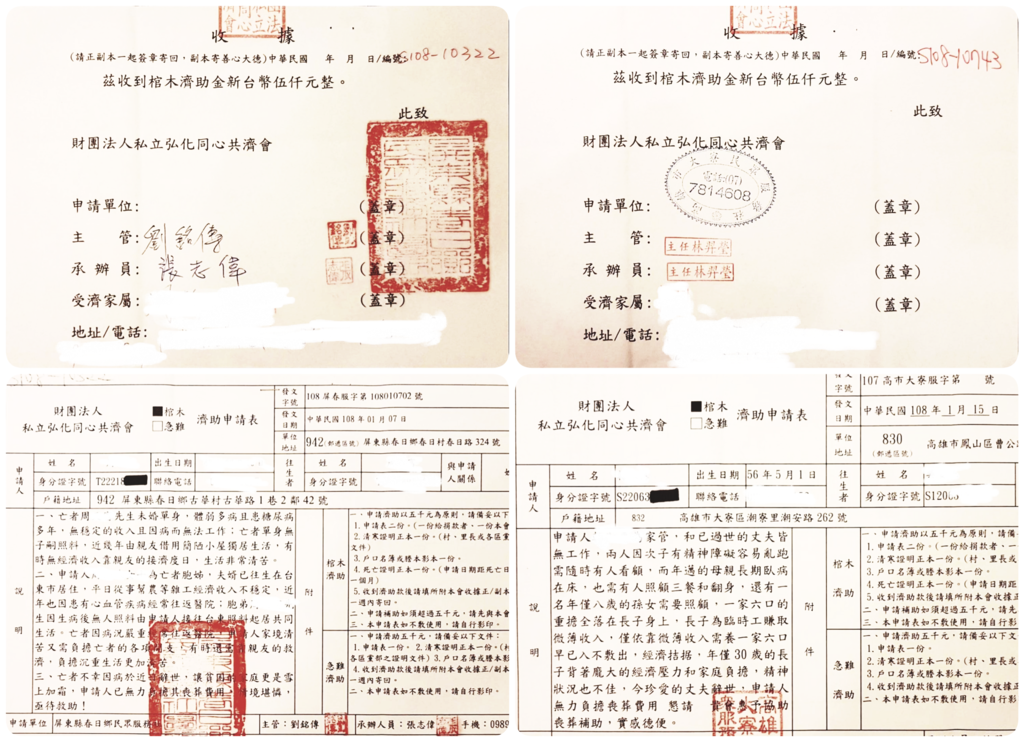 收　據
(請正副本一起簽章寄回，副本寄善心大德)中華民國　年　月　日/編號:S108-10322
茲收到棺木濟助金新台幣伍仟元整。
此致
財團法人私立弘化同心共濟會
申請單位:　(蓋章)
主　管:劉銘傳　(蓋章)
承辦員:張志偉　(蓋章)
受濟家屬:　(蓋章)
地址/電話:
收　據
(請正副本一起簽章寄回，副本寄善心大德)中華民國　年　月　日/編號:S108-10743
茲收到棺木濟助金新台幣伍仟元整。
此致
財團法人私立弘化同心共濟會
電話:(07)
7814608
申請單位:　(蓋章)
主　管:主任林羿瑩　(蓋章)
承辦員:主任林羿瑩　(蓋章)
受濟家屬:　(蓋章)
地址/電話:
財團法人
私立弘化同心共濟會
■棺木
□急難
濟助申請表
發文字號 108屏春服字第108010702號
發文日期 中華民國108年01月07日
單位地址 942(郵遞區號)屏東縣春日鄉春日村春日路324號
申請人
姓名　出生日期
身分證字號 T22218　聯絡電話
戶籍地址 942 屏東縣春日鄉古華村古華路1巷2鄰42號
往生者
姓名
身分證字號
與申請人關係
說明
一、亡者周　先生未婚單身，體弱多病且患糖尿病
多年，無穩定的收入且因病而無法工作；亡者單身無
子嗣照料，近幾年由親友借用簡陋小屋獨居生活，有
時無經濟收入靠親友的接濟度日，生活非常清苦。
二、申請人　為亡者胞姊，夫婿已往生在台
東市居住，平日從事幫農等雜工經濟收入不穩定，近
年也因患有心血管疾病經常往返醫院；胞弟
因生病後無人照料由申請人接往台東照料起居共同
生活。亡者因病況嚴重經常往返醫院，申請人家境清
苦又需負擔亡者的各項開支，有時還需靠親友的救
濟，負擔沉重生活更加清苦。
三、亡者不幸因病於近日辭世，讓貧困的家庭更是雪
上加霜，申請人已無力負擔其喪葬費用，情境堪憐，
亟待救助！
附件
棺木濟助
一、申請濟助以五千元為原則，請備妥以
1.申請表二份。(一份給捐款者、一份本會
2.清寒證明正本一份。(村、里長或各區黨
文件)
3.戶口名簿或謄本影本一份。
4.死亡證明正本一份。(申請日期距死亡日
一個月)
5.收到濟助款後請填所附本會收據正/副本
一週內寄回。
二、申請補助如須超過五千元，請先與本會
三、本申請表如不敷使用，請自行影印。
急難濟助
一、申請濟助五千元，請備妥以下文件：
1.申請表一份。2.清寒證明正本一份。(村
各區黨部之證明文件)3.戶口名簿或謄本影
4.收到濟助款後請填所附本會收據正/副本
一週內寄回。
二、本申請表如不敷使用，請自行影印。
申請單位　屏東縣春日鄉民眾服務　主管：劉銘傳　承辦人員：張志偉　手機：0989
財團法人
私立弘化同心共濟會
■棺木
□急難
濟助申請表
發文字號 107高市大寮服字第　號
發文日期 中華民國 108年 1月 15日
單位地址 830(郵遞區號)　高雄市鳳山區曹公
申請人
姓名　出生日期 56年5月1日
身分證字號 S22063　聯絡電話
戶籍地址 832 高雄市大寮區潮寮里潮安路262號
往生者
姓名
身分證字號 S120
說明
申請人　家管，和已過世的丈夫皆
無工作，兩人因次子有精神障礙容易亂跑
需隨時有人看顧，而年邁的母親長期臥病
在床，也需有人照顧三餐和翻身，還有一
名年僅八歲的孫女需要照顧，一家六口的
重擔全落在長子身上，長子為臨時工賺取
微薄收入，僅依靠微薄收入需養一家六口
早已入不敷出，經濟拮据，年僅30歲的長
子背著龐大的經濟壓力和家庭負擔，精神
狀況也不佳，今珍愛的丈夫辭世，申請人
無力負擔喪葬費用 懇請 貴會惠予協助
喪葬補助，實感德便。
附件
棺木濟助
一、申請濟助以五千元為原則，請備
1.申請表二份。(一份給捐款者、一
2.清寒證明正本一份。(村、里長或
3.戶口名簿或謄本影本一份。
4.死亡證明正本一份。(申請日期距
5.收到濟助款後請填所附本會收據
二、申請補助如須超過五千元，請先
三、本申請表如不敷使用，請自行影
急難濟助
一、申請濟助五千元，請備妥以下文
1.申請表一份。
2.清寒證明正本一份。(村、里長或
3.戶口名簿或謄本影本一份。
4.收到濟助款後請填所附本會收據
二、本申請表如不敷使用，請自行影